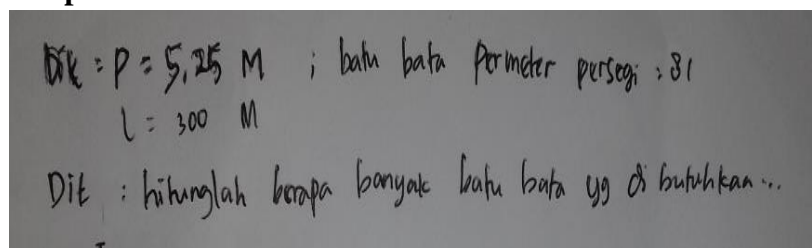 Dik : P = 5,25 M ; batu bata Permeter persegi : 81
l = 300 M
Dit : hitunglah berapa banyak batu bata yg di butuhkan...